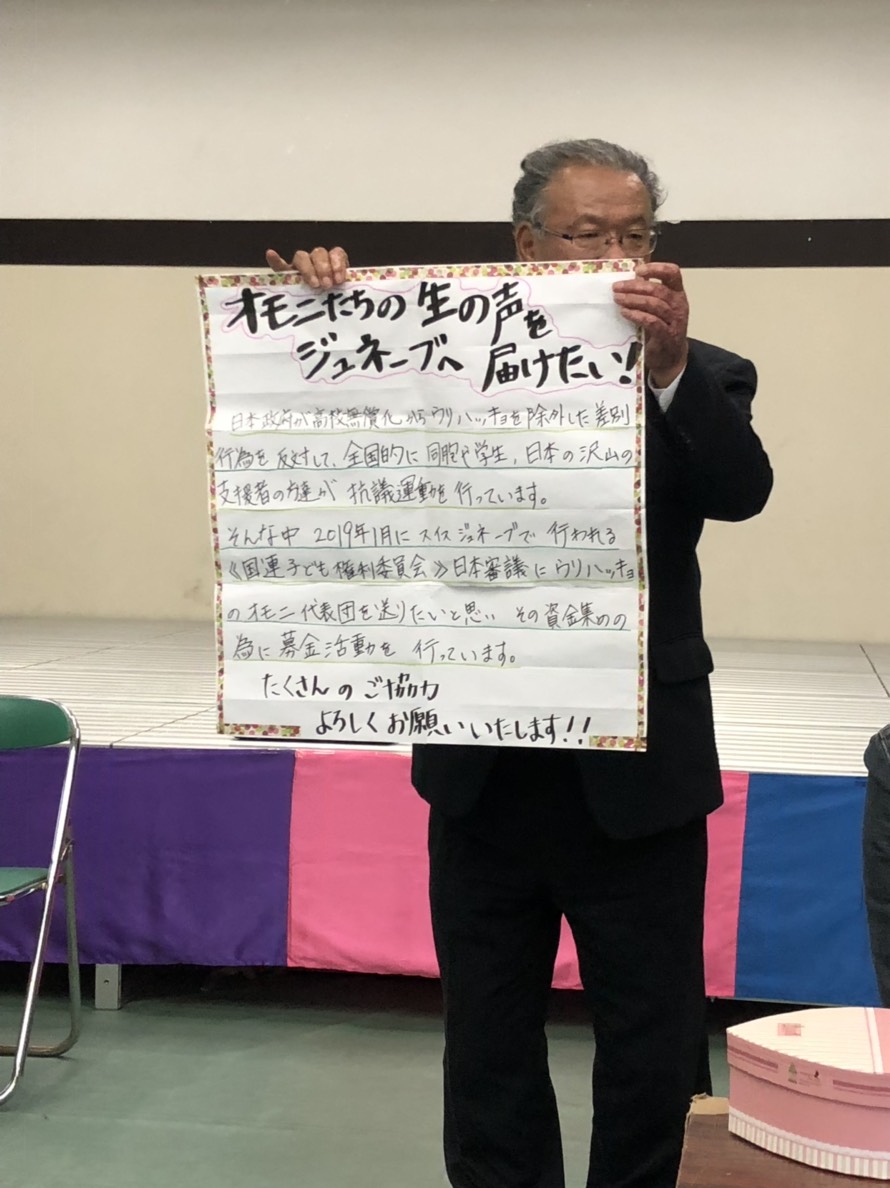 オモニたちの生の声を
ジュネーブへ 届けたい!
日本政府が高校無償化からウリハッキョを除外した差別
行為を反対して、全国的に同胞や学生、日本の沢山の
支援者の方達が 抗議運動を行っています。
そんな中 2019年1月にスイスジュネーブで 行われる
《国連子ども権利委員会》日本審議にウリハッキョ
のオモニ代表団を送りたいと思い その資金集めの
為に募金活動を 行っています。
たくさんのご協力
よろしくお願いいたします!!